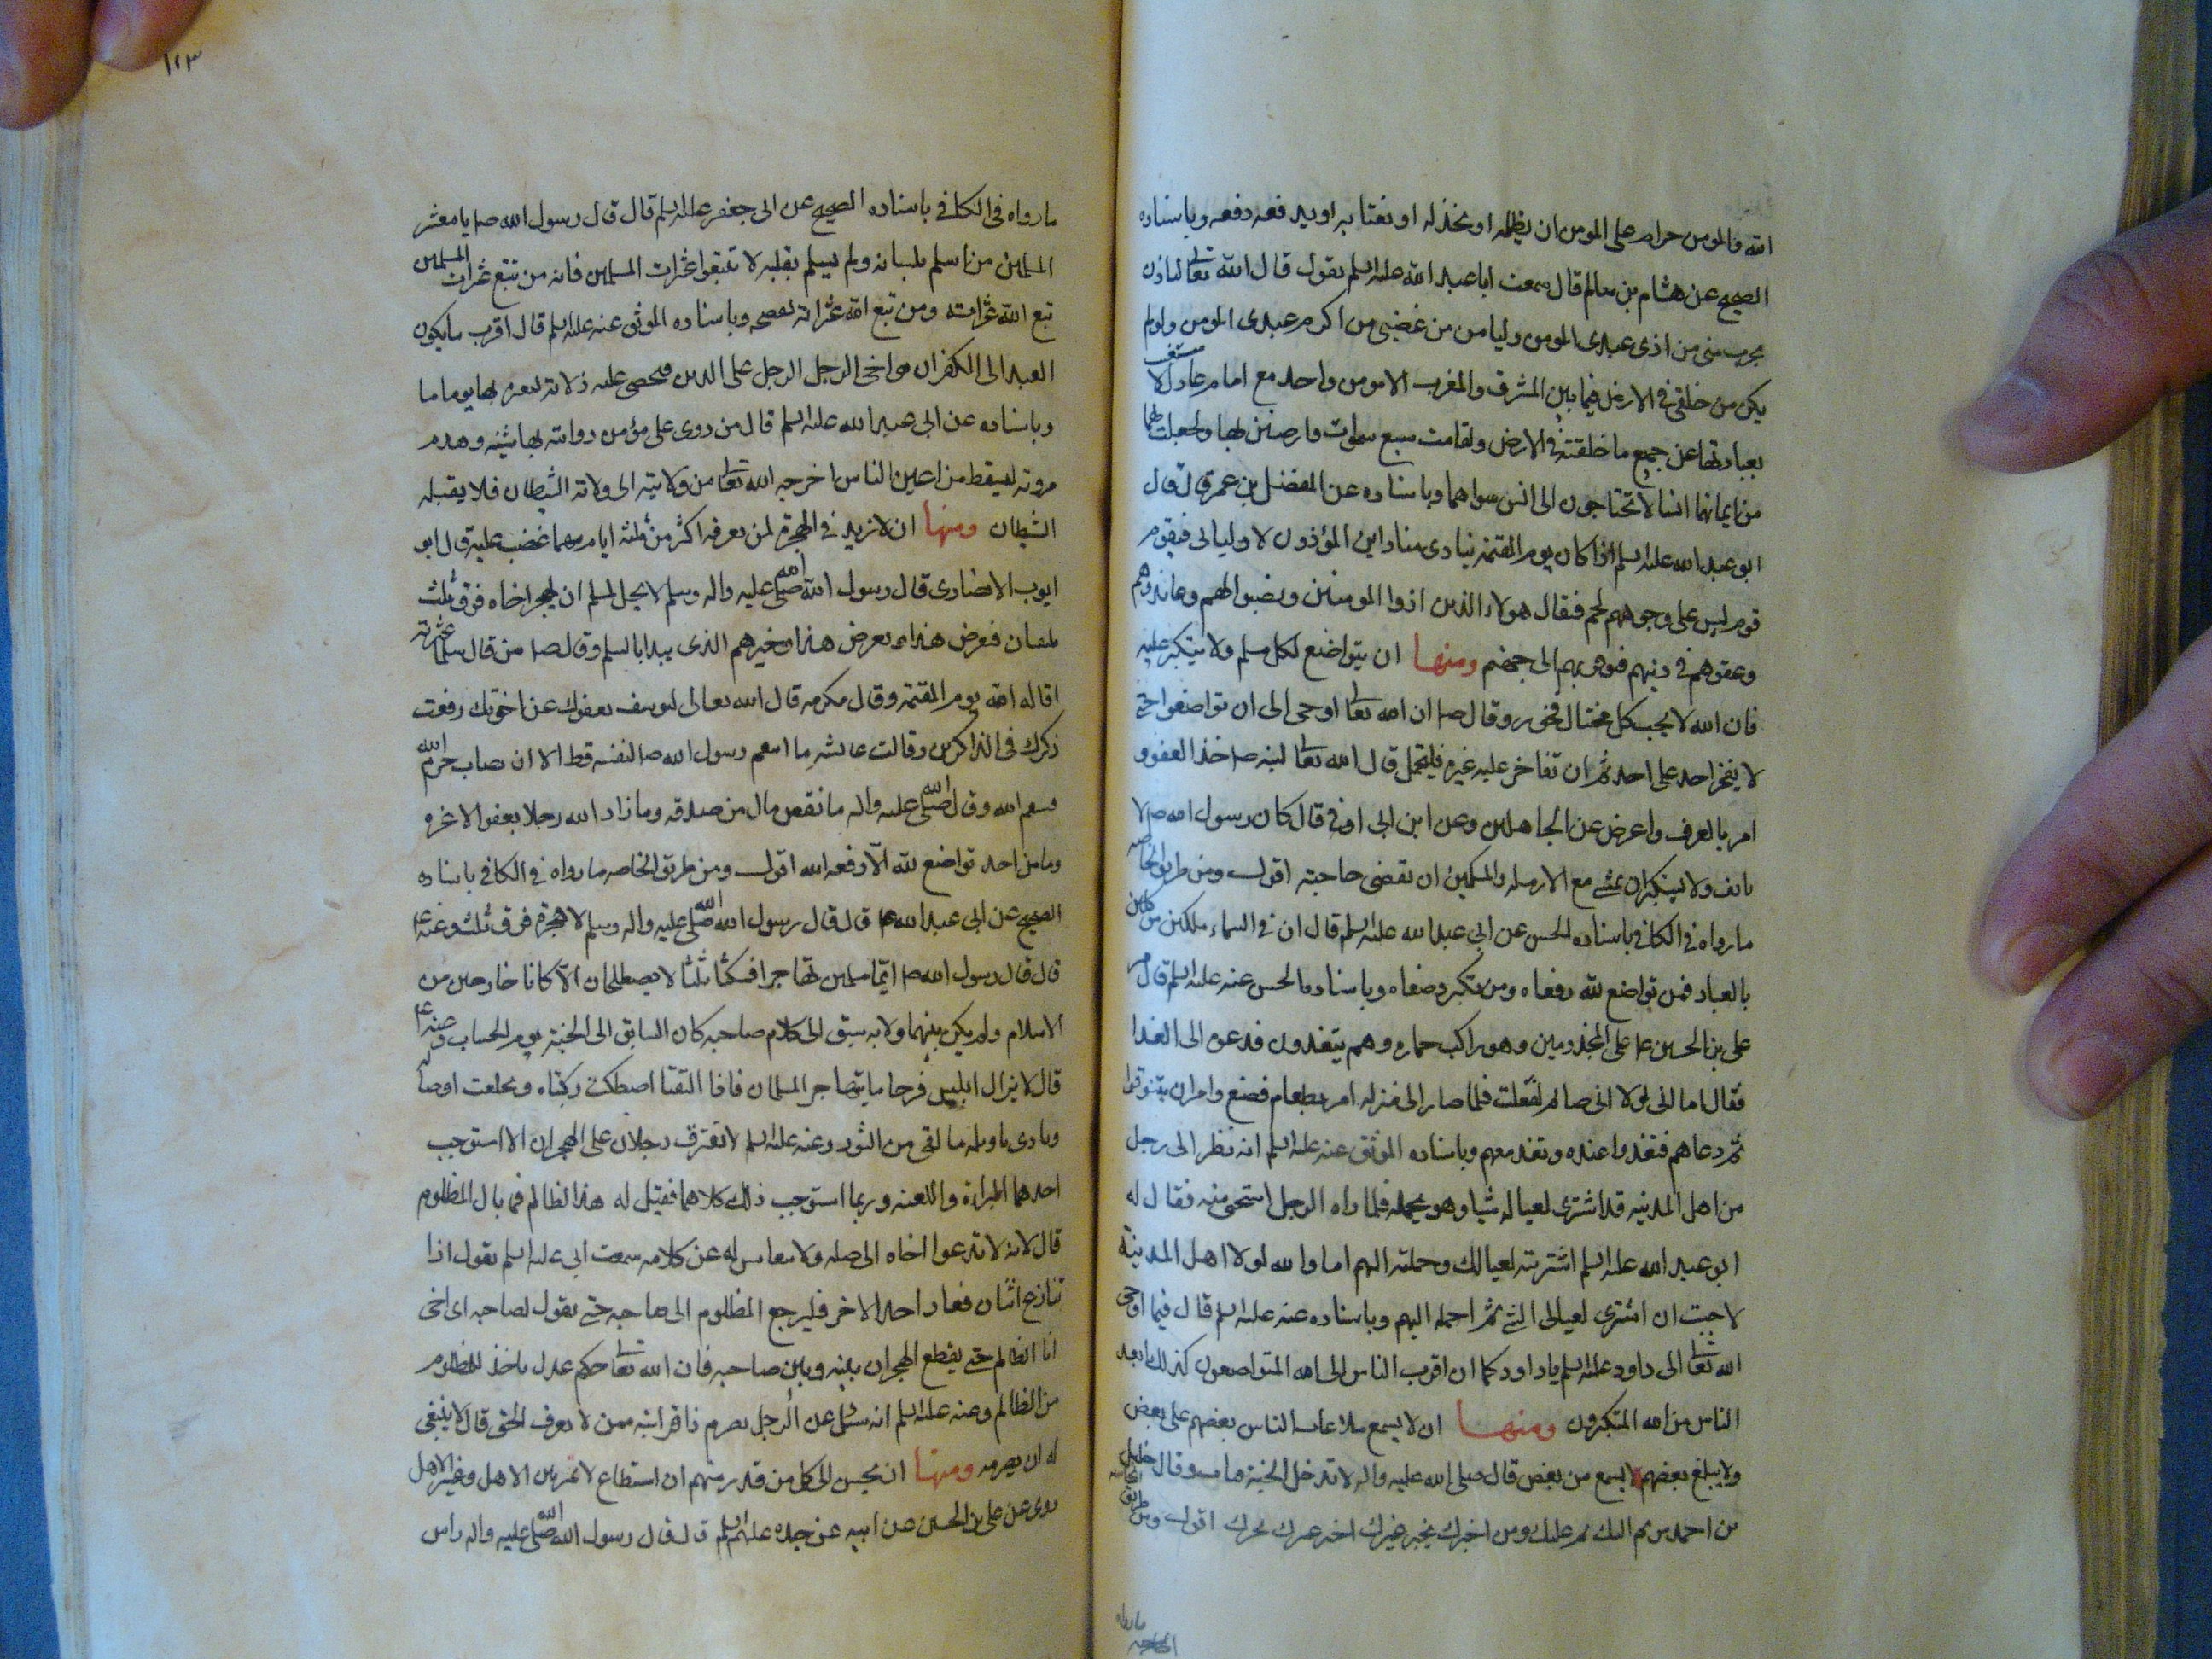 الله والمومن حرام على المومن ان يظلمه او يخذله او يغتابه او يدفعه دفعه وباسناده
الصحيح عن هشام بن سالم قال سمعت ابا عبد الله عليه السلم يقول قال الله تعالى لياذن
بحرب منى من اذى عبدى المومن وليامن من غضبى من اكرم عبدى المومن ولو لم
يكن من خلقى فى الارض فيما بين المشرق والمغرب الا مومن واحد مع امام عادل لا ستغنيت
بعبادتهما عن جميع ما خلقته فى الارض ولقامت سبع سموات وارضين بهما ولجعلت لهما
من ايمانهما انسا لا تحتاجون الى انس سواهما وباسناده عن المفضل بن عمر قال قال
ابو عبد الله عليه السلم اذا كان يوم القيمة ينادى مناد اين المؤذون لاوليائى فيقوم
قوم ليس على وجوههم لحم فيقال هولاء الذين اذوا المومنين ونصبوا لهم وعاندوهم
وعنفوهم فى دينهم فيؤمر بهم الى جهنم ومنها ان يتواضع لكل مسلم ولا يتكبر عليه
فان الله لا يحب كل مختال فخور وقال ص ان الله تعالى اوحى الى ان تواضعوا حتى
لا يفخر احد على احد ثم ان تفاخر عليه غيره فليتحمل قال الله تعالى لنبيه ص خذ العفو و
امر بالعرف واعرض عن الجاهلين وعن ابن ابى اوفى قال كان رسول الله ص لا
يانف ولا يستكبر ان يمشى مع الارملة والمسكين ان يقضى حاجته اقول ومن طريق الخاصه
ما رواه فى الكافى باسناده الحسن عن ابى عبد الله عليه السلم قال ان فى السماء ملكين موكلين
بالعباد فمن تواضع لله رفعاه ومن تكبر وضعاه وباسناده الحسن عنه عليه السلم قال مر
على بن الحسين ع على المجذومين وهو راكب حماره وهم يتغدون فدعوه الى الغدا
فقال اما انى لولا انى صائم لفعلت فلما صار الى منزله امر بطعام فصنع وامر ان يتنوقوا
ثم دعاهم فتغدوا عنده وتغد معهم وباسناده الموثق عنه عليه السلم انه نظر الى رجل
من اهل المدينه قد اشترى لعياله شيا وهو يحمله فلما راه الرجل استحى منه فقال له
ابو عبد الله عليه السلم اشتريته لعيالك وحملته اليهم اما والله لولا اهل المدينة
لاحببت ان اشترى لعيالى الشئ ثم احمله اليهم وباسناده عنه عليه السلم قال فيما اوحى
الله تعالى الى داود عليه السلم يا داود كما ان اقرب الناس الى الله المتواضعون كذلك ابعد
الناس من الله المتكبرون ومنها ان لا يسمع بلاغات الناس بعضهم على بعض
ولا يبلغ بعضهم ما يسمع من بعض قال صلى الله عليه واله لا تدخل الجنة وقال خليل
بن احمد من نم اليك نم عليك ومن اخبرك بخبر غيرك اخبر غيرك بخبرك اقول ومن طريق الخاصه
ما رواه
١٢٣
ما رواه فى الكافى باسناده الصحيح عن ابى جعفر عليه السلم قال قال رسول الله ص يا معشر
المسلمين من اسلم بلسانه ولم يسلم بقلبه لا تتبعوا عثرات المسلمين فانه من تتبع عثرات المسلمين
تتبع الله عثراته ومن تتبع الله عثراته يفضحه وباسناده الموثق عنه عليه السلم قال اقرب ما يكون
العبد الى الكفر ان يواخى الرجل الرجل على الدين فيحصى عليه زلاته ليعيره بها يوما ما
وباسناده عن ابى عبد الله عليه السلم قال من روى على مؤمن رواية بها شينه وهدم
مروته ليسقط من اعين الناس اخرجه الله تعالى من ولايته الى ولاية الشيطان فلا يقبله
الشيطان ومنها ان لا يزيد فى الهجرة لمن يعرفه اكثر من ثلثه ايام مهما غضب عليه قال ابو
ايوب الانصارى قال رسول الله صلى الله عليه واله وسلم لا يحل لمسلم ان يهجر اخاه فوق ثلث
يلتقيان فيعرض هذا ويعرض هذا وخيرهم الذى يبدا بالسلم وقال ص من قال مسلما عثرته
اقاله الله يوم القيمة وقال عكرمه قال الله تعالى ليوسف بعفوك عن اخوتك رفعت
ذكرك فى الذاكرين وقالت عايشه ما انتقم رسول الله ص لنفسه قط الا ان يصاب حرم الله
فينتقم الله وقال صلى الله عليه واله ما نقص مال من صدقه وما زاد الله رجلا بعفو الا عزه
وما من احد تواضع لله الا رفعه الله اقول ومن طريق الخاصه ما رواه فى الكافى باسناده
الصحيح عن ابى عبد الله ع قال قال رسول الله صلى الله عليه واله وسلم لا هجرة فوق ثلث وعنه ع
قال قال رسول الله ص ايما مسلمين تهاجرا فمكثا ثلثا لا يصطلحان الا كانا خارجين من
الاسلام ولم يكن بينهما ولايه سبق الى كلام صاحبه كان السابق الى الجنة يوم الحساب وعنه ع
قال لا يزال ابليس فرحا ما يتهاجر المسلمان فاذا التقيا اصطكت ركبتاه وتخلعت اوصاله
ونادى يا ويله ما لقى من الثبور وعنه عليه السلم لا يفترق رجلان على الهجران الا استوجب
احدهما البراءة واللعنه وربما استوجب ذلك كلاهما فقيل له هذا الظالم فما بال المظلوم
قال لانه لا يدعوا اخاه الى صله ولا يتعامس له عن كلامه سمعت ابى عليه السلم يقول اذا
تنازع اثنان فعاز احد الاخر فليرجع المظلوم الى صاحبه حتى يقول لصاحبه اى اخى
انا الظالم حتى يقطع الهجران بينه وبين صاحبه فان الله تعالى حكم عدل ياخذ للمظلوم
من الظالم وعنه عليه السلم انه سئل عن الرجل يصرم ذا قرابته ممن لا يعرف الحق قال لا ينبغى
له ان يصرمه ومنها ان يحسن الى كل من قدر منهم ان استطاع لا يميز بين الاهل وغير الاهل
روى عن على بن الحسين عن ابيه عن جده عليهم السلم قال قال رسول الله صلى الله عليه واله راس